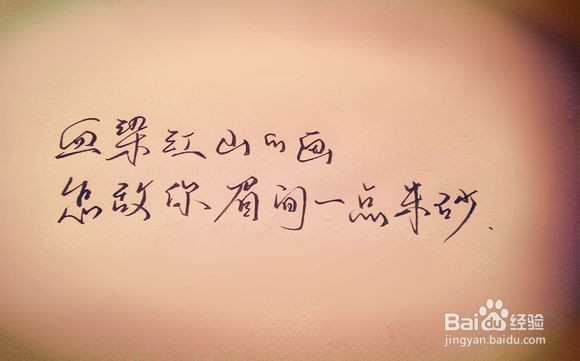 血染江山的画
怎敌你眉间一点朱砂.
Bai du 经验
jingyan.baidu.com